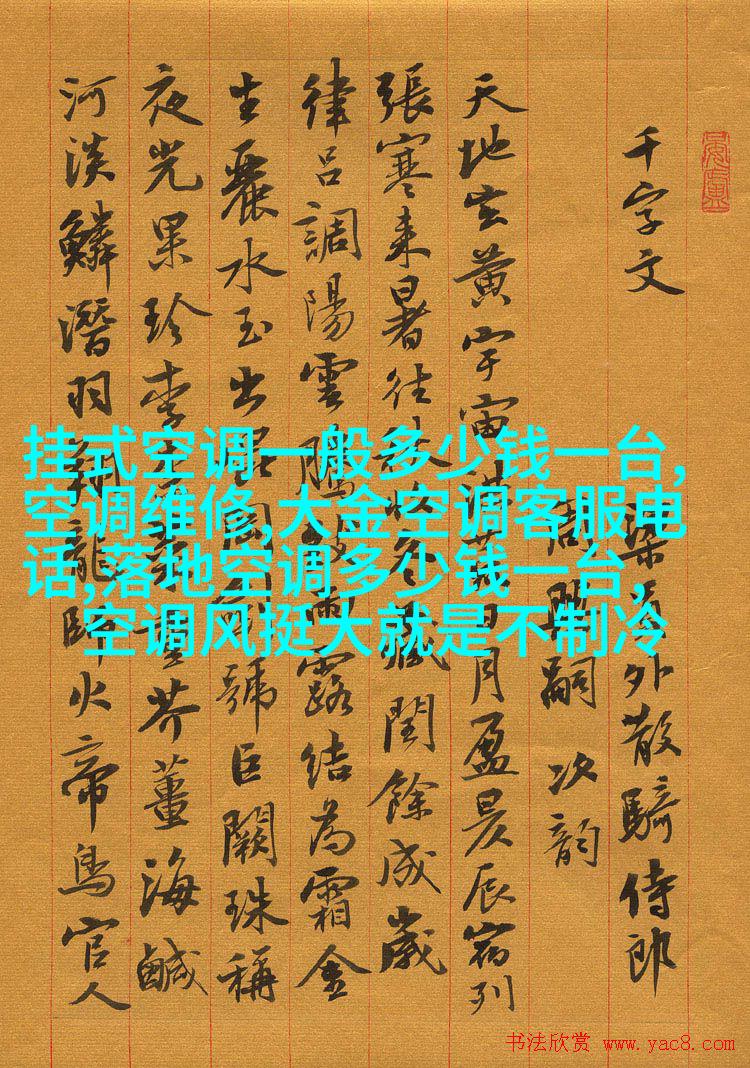 千字文
梁員外散騎侍郎
周興嗣次韵
天地玄黃宇宙洪荒日月盈昃辰宿列
張寒来暑往秋收冬藏閏餘成歲
律吕調陽雲騰致雨露結為霜金
生麗水玉出崑岡劍號巨闕珠稱
夜光果珍李柰菜重芥薑海鹹
河淡鱗潛羽翔龍師火帝鳥官人
挂式空调一般多少钱一台,
空调维修,大金空调客服电
话,落地空调多少钱一台,
空调风挺大就是不制冷
书法欣赏 www.yac8.com